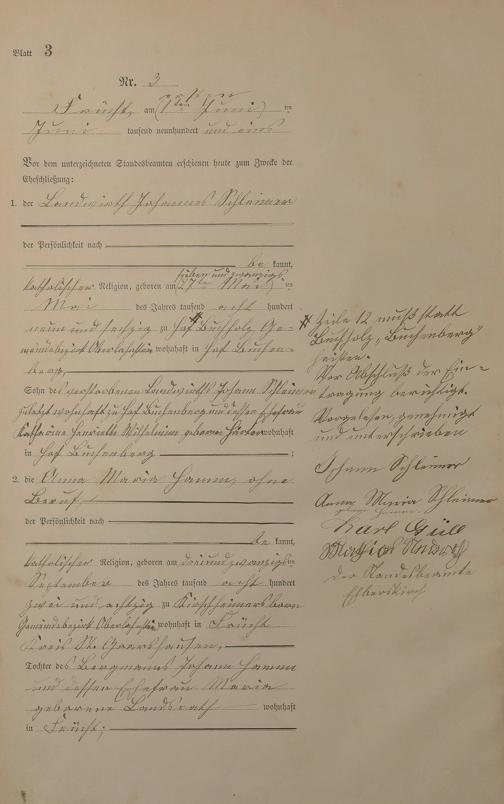 Blatt 3
Nr. 3
Frücht, am (7ten Juni) ten
Juni tausend neunhundert und eins
Vor dem unterzeichneten Standesbeamten erschienen heute zum Zwecke der
Eheschließung:
1. der Landwirth Johannes Schleimer
der Persönlichkeit nach
be kannt,
sieben und zwanzigs
katholischer Religion, geboren am (27ten Mai) ten
Mai des Jahres tausend acht hundert
neun und sechzig zu Hof Buchholz Ge-
meindebezirk Oberlahnstein wohnhaft in Hof Buchen-
berg
Sohn des verstorbenen Landwirths Johann Schleimer
zuletzt wohnhaft zu Hof Buchenberg und dessen Ehefrau
Katharine Henriette Wilhelmine geborene wohnhaft
in Hof Buchenberg ;
2. die Anna Maria Hamm, ohne
Beruf,
der Persönlichkeit nach
be kannt,
katholischer Religion, geboren am dreiundzwanzigsten
September des Jahres tausend acht hundert
zwei und achtzig zu
Gemeindebezirk Oberlahnstein wohnhaft in Frücht
Kreis St. Goarshausen,
Tochter des Bergmanns Johann Hamm
und dessen Ehefrau Maria
geborene Landsrath wohnhaft
in Frücht;
Zeile 12 muß statt
"Buchholz" "Buchenberg"
heißen.
Vor Abschluß der Ein-
tragung berichtigt.
Vorgelesen, genehmigt
und unterschrieben
Johann Schleimer
Anna Maria Schleimer
geborene Hamm
Karl Güll
Mathias
Der Standesbeamte